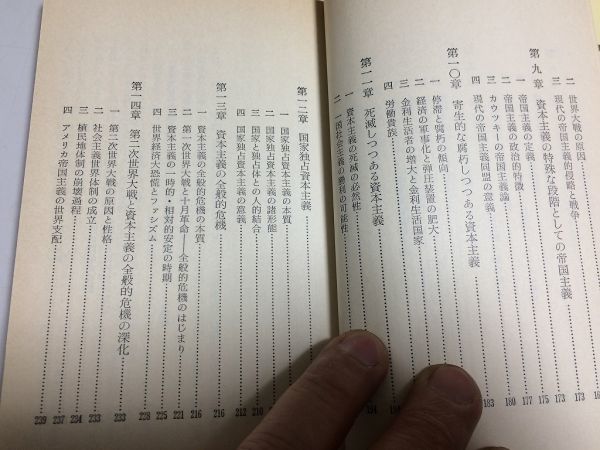 二 世界大戦の原因
三 現代の帝国主義的侵略と戦争 173
第九章 資本主義の特殊な段階としての帝国主義 175
一 帝国主義の定義 175
二 帝国主義の政治的特徴 177
三 カウツキーの帝国主義論 180
四 現代の帝国主義同盟の意義 183
第一〇章 寄生的な腐朽しつつある資本主義
一 停滞と腐朽の傾向
二 経済の軍事化と弾圧装置の肥大
三 金利生活者の増大と金利生活国家
四 労働貴族
第一一章 死滅しつつある資本主義
一 資本主義の死滅の必然性
二 一国社会主義の勝利の可能性
第一二章 国家独占資本主義
一 国家独占資本主義の本質
二 国家独占資本主義の諸形態
三 国家と独占体との人的結合 210
四 国家独占資本主義の意義 212
第一三章 資本主義の全般的危機 216
一 資本主義の全般的危機の本質 216
二 第一次世界大戦と十月革命——全般的危機のはじまり 221
三 資本主義の一時的・相対的安定の時期 225
四 世界経済大恐慌とファシズム 228
第一四章 第二次世界大戦と資本主義の全般的危機の深化 233
一 第二次世界大戦の原因と性格 233
二 社会主義世界体制の成立 234
三 植民地体制の崩壊過程 237
四 アメリカ帝国主義の世界支配 239